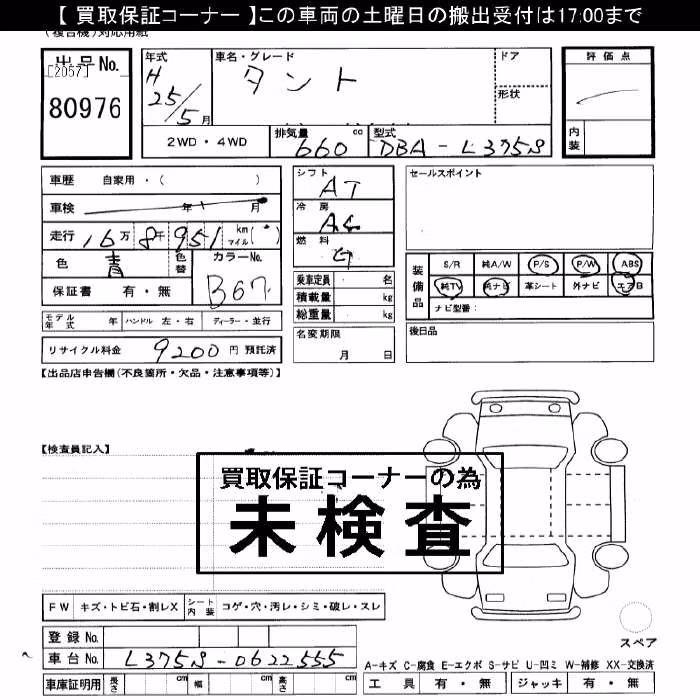 【 買取保証コーナー 】この車両の土曜日の搬出受付は17:00まで
(複合機)対応用紙
出品No.
[2057]
80976
年式 H 25/5月
車名・グレード タント
ドア
形状
評価点
内装
2WD・4WD
排気量 660 cc
型式 DBA-L375S
車歴 自家用・( )
車検 年 月
走行 16万8千951 km マイル( )
色 青 色替 カラーNo. B67
保証書 有・無
シフト AT
冷房 AC
燃料
乗車定員 ・ 名
積載量 kg
総重量 kg
名変期限
月 日
セールスポイント
装備品
S/R 純A/W P/S P/W ABS
純TV 純ナビ 革シート 外ナビ エアB
ナビ型番:
後日品
モデル年式 年 ハンドル 左・右 ディーラー・並行
リサイクル料金 9200 円 預託済
【出品店申告欄(不良箇所・欠品・注意事項等)】
【検査員記入】
買取保証コーナーの為
未検査
FW キズ・トビ石・割レX シート内装 コゲ・穴・汚レ・シミ・破レ・スレ
登録No.
車台No. L375S-0622555
車庫証明用 長さ cm 幅 cm 高さ cm
スペア
A-キズ C-腐食 E-エクボ S-サビ U-凹ミ W-補修 XX-交換済
工具 有・無 ジャッキ 有・無